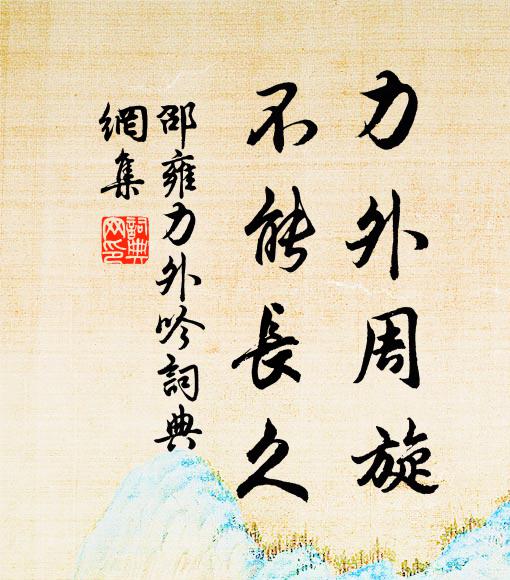 力外周旋
不能長久
邵雍力外吟詞典
網集
詞典
网印